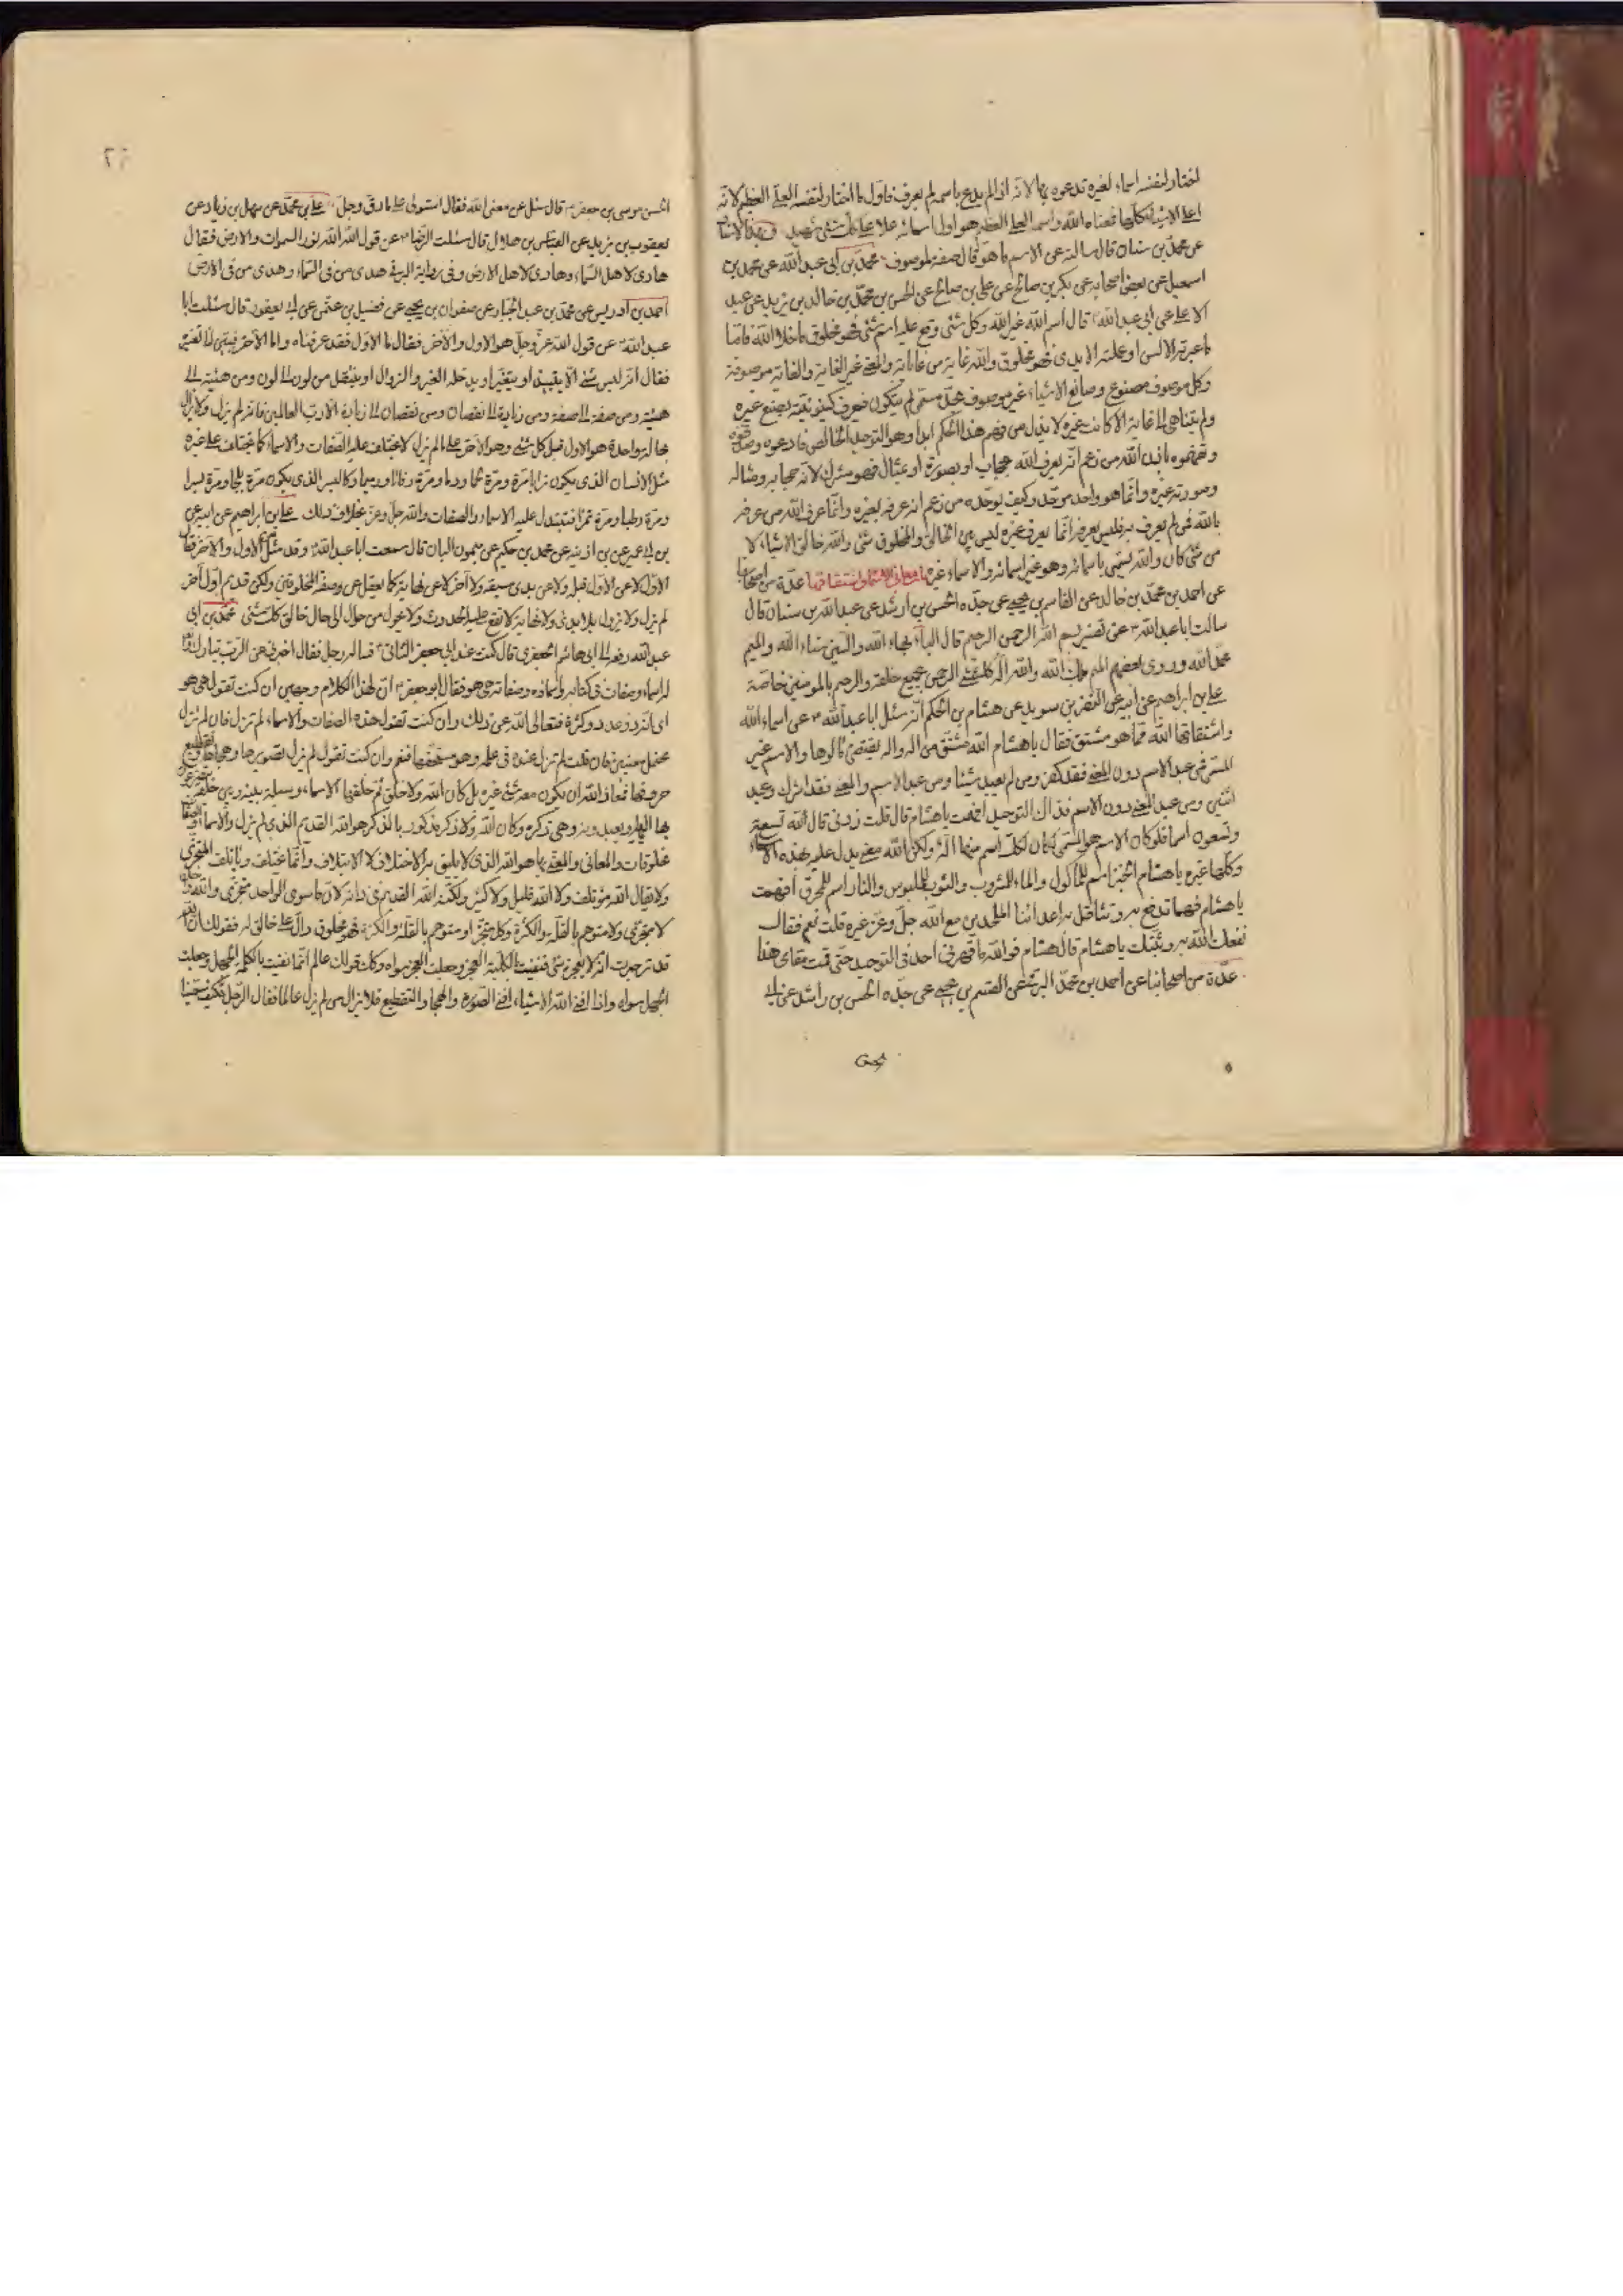 اختار لنفسه اسماء لغيره تدعوه بها لانه اذا لم يدع باسمه لم يعرف فاول ما اختار لنفسه العلى العظيم لانه
اعلى الاشياء كلها فمعناه الله واسمه العلى العظيم هو اول اسمائه علا على كل شئ وبهذا الاسناد
عن محمد بن سنان قال سالته عن الاسم ما هو قال صفة لموصوف محمد بن ابى عبد الله عن محمد بن
اسمعيل عن بعض اصحابه عن بكر بن صالح عن على بن صالح عن الحسن بن محمد بن خالد بن يزيد عن عبد
الاعلى عن ابى عبد الله قال اسم الله غير الله وكل شئ وقع عليه اسم شئ فهو مخلوق ما خلا الله فاما
ما عبرته الالسن او عملته الايدى فهو مخلوق والله غاية من غاياته والمغيى غير الغاية والغاية موصوفة
وكل موصوف مصنوع وصانع الاشياء غير موصوف بحد مسمى لم يتكون فيعرف كينونيته بصنع غيره
ولم يتناهى الى غاية الا كانت غيره لا يذل من فهم هذا الحكم ابدا وهو التوحيد الخالص فادعوه وصدقوه
وتفهموه باذن الله من زعم انه يعرف الله بحجاب او بصورة او بمثال فهو مشرك لان حجابه ومثاله
وصورته غيره وانما هو واحد موحد وكيف يوحده من زعم انه عرفه بغيره وانما عرف الله من عرفه
بالله فمن لم يعرف به فليس يعرفه انما يعرف غيره ليس بين الخالق والمخلوق شئ والله خالق الاشياء لا
من شئ كان والله يسمى باسمائه وهو غير اسمائه والاسماء غيره باب معانى الاسماء واشتقاقها عدة من اصحابنا
عن احمد بن محمد بن خالد عن القاسم بن يحيى عن جده الحسن بن راشد عن عبد الله بن سنان قال
سالت ابا عبد الله عن تفسير بسم الله الرحمن الرحيم قال الباء بهاء الله والسين سناء الله والميم
مجد الله وروى بعضهم الميم ملك الله والله اله كل شئ الرحمن بجميع خلقه والرحيم بالمومنين خاصة
على بن ابراهيم عن ابيه عن النضر بن سويد عن هشام بن الحكم انه سئل ابا عبد الله عن اسماء الله
واشتقاقها الله مما هو مشتق فقال يا هشام الله مشتق من اله واله يقتضى مالوها والاسم غير
المسمى فمن عبد الاسم دون المعنى فقد كفر ومن لم يعبد شيئا ومن عبد الاسم والمعنى فقد اشرك وعبد
اثنين ومن عبد المعنى دون الاسم فذاك التوحيد افهمت يا هشام قال قلت زدنى قال لله تسعة
وتسعون اسما فلو كان الاسم هو المسمى لكان لكل اسم منها اله ولكن الله معنى يدل عليه بهذه الاسماء
وكلها غيره يا هشام الخبز اسم للمأكول والماء للمشروب والثوب للملبوس والنار اسم للمحرق افهمت
يا هشام فهما تدفع به وتناضل به اعدائنا الملحدين مع الله جل وعز غيره قلت نعم فقال
نفعك الله به وثبتك يا هشام قال هشام فوالله ما قهرنى احد فى التوحيد حتى قمت مقامى هذا
عدة من اصحابنا عن احمد بن محمد البرقى عن القسم بن يحيى عن جده الحسن بن راشد عن ابى
الحسن
الحسن موسى بن جعفر قال سئل عن معنى الله فقال استولى على ما دق وجل على بن محمد عن سهل بن زياد عن
يعقوب بن يزيد عن العباس بن هلال قال سئلت الرضا عن قول الله الله نور السموات والارض فقال
هادى لاهل السماء وهادى لاهل الارض وفى رواية البرقى هدى من فى السماء وهدى من فى الارض
احمد بن ادريس عن محمد بن عبد الجبار عن صفوان بن يحيى عن فضيل بن عثمن عن ابى يعفور قال سئلت ابا
عبد الله عن قول الله عز وجل هو الاول والآخر فقال اما الاول فقد عرفناه واما الآخر فبين لنا تفسيره
فقال انه ليس شئ الا يبيد او يتغير او يدخله الغير والزوال او ينتقل من لون الى لون ومن هيئة الى
هيئة ومن صفة الى صفة ومن زيادة الى نقصان ومن نقصان الى زيادة الا رب العالمين فانه لم يزل ولا يزال
بحالة واحدة هو الاول قبل كل شئ وهو الآخر على ما لم يزل لا تختلف عليه الصفات والاسماء كما تختلف على غيره
مثل الانسان الذى يكون ترابا مرة ومرة لحما ودما ومرة رفاتا ورميما وكالبسر الذى يكون مرة بلحا ومرة بسرا
ومرة رطبا ومرة تمرا فتتبدل عليه الاسماء والصفات والله جل وعز بخلاف ذلك على بن ابراهيم عن ابيه عن
بن ابى عمير عن بن اذينه عن محمد بن حكيم عن ميمون البان قال سمعت ابا عبد الله وقد سئل عن الاول والآخر فقال
الاول لا عن الاول قبله ولا عن بدى سبقه والآخر لا عن نهاية كما يعقل عن وصف المخلوقين ولكن قديم اول آخر
لم يزل ولا يزول بلا بدئ ولا نهاية لا يقع عليه الحدوث ولا يحول من حال الى حال خالق كل شئ محمد بن ابى
عبد الله رفعه الى ابى هاشم الجعفرى قال كنت عند ابى جعفر الثانى فساله رجل فقال اخبرنى عن الرب تبارك
له اسماء وصفات فى كتابه واسمائه وصفاته هى هو فقال ابو جعفر ان لهذا الكلام وجهين ان كنت تقول هى هو
اى انه ذو عدد وكثرة فتعالى الله عن ذلك وان كنت تقول هذه الصفات والاسماء لم تزل فان لم تزل
محتمل معنيين فان قلت لم تزل عنده فى علمه وهو مستحقها فنعم وان كنت تقول لم يزل تصويرها وهجاؤها وتقطيع
حروفها فمعاذ الله ان يكون معه شئ غيره بل كان الله ولا خلق ثم خلقها الاسماء وسيلة بينه وبين خلقه
بها اليه ويعبدونه وهى ذكره وكان الله ولا ذكر والمذكور بالذكر هو الله القديم الذى لم يزل والاسماء والصفات
مخلوقات والمعانى والمعنى بها هو الله الذى لا يليق به الاختلاف ولا الايتلاف وانما يختلف ويأتلف المتجزى
ولا يقال الله مؤتلف ولا الله قليل ولا كثير ولكنه الله القديم فى ذاته لان ما سوى الواحد متجزى والله واحد
لا متجزى ولا متوهم بالقلة والكثرة وكل متجزا او متوهم بالقلة والكثرة فهو مخلوق دال على خالق له فقولك ان الله
قدير خبرت انه لا يعجزه شئ فنفيت بالكلمة العجز وجعلت العجز سواه وكذلك قولك عالم انما نفيت بالكلمة الجهل وجعلت
الجهل سواه واذا افنى الله الاشياء افنى الصورة والهجاء والتقطيع فلا يزال من لم يزل عالما فقال الرجل فكيف سمينا